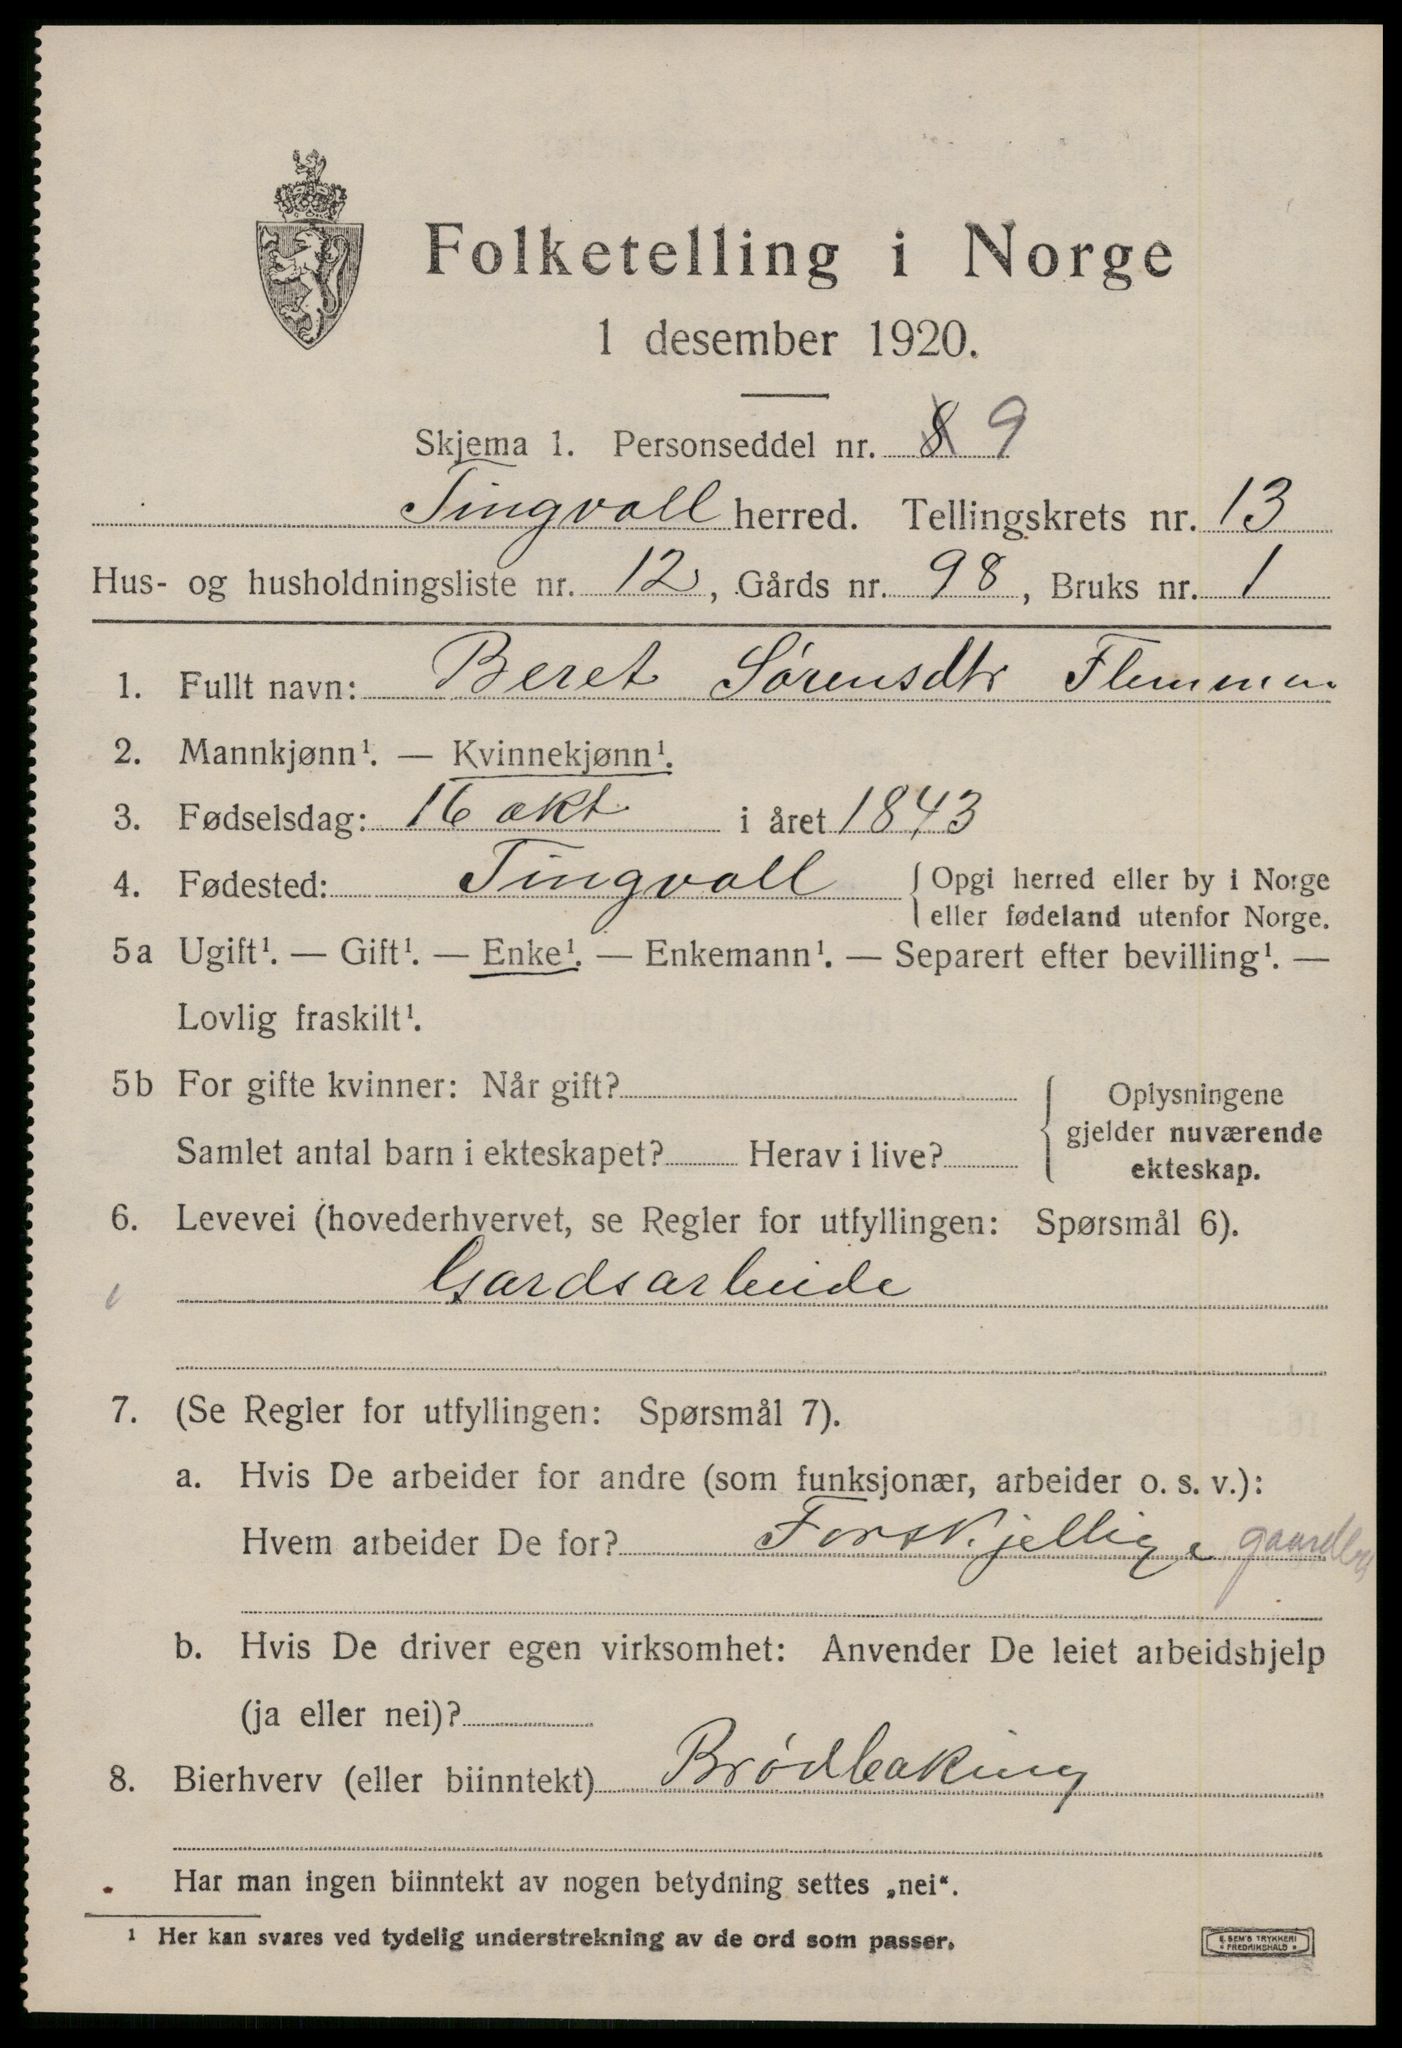 Folketelling i Norge
1 desember 1920.
Skjema 1. Personseddel nr. 8 9
Tingvoll herred. Tellingskrets nr. 13
Hus- og husholdningsliste nr. 12, Gårds nr. 98, Bruks nr. 1
1. Fullt navn: Beret Sørensdtr Flemmen
2. Mannkjønn¹. — Kvinnekjønn¹.
3. Fødselsdag: 16 okt i året 1843
4. Fødested: Tingvoll { Opgi herred eller by i Norge
eller fødeland utenfor Norge.
5a Ugift¹. — Gift¹. — Enke¹. — Enkemann¹. — Separert efter bevilling¹. —
Lovlig fraskilt¹.
5b For gifte kvinner: Når gift?
Samlet antal barn i ekteskapet? Herav i live?
Oplysningene
gjelder nuværende
ekteskap.
6. Levevei (hovederhvervet, se Regler for utfyllingen: Spørsmål 6).
Gardsarbeide
7. (Se Regler for utfyllingen: Spørsmål 7).
a. Hvis De arbeider for andre (som funksjonær, arbeider o. s. v.):
Hvem arbeider De for? Forskjellige
b. Hvis De driver egen virksomhet: Anvender De leiet arbeidshjelp
(ja eller nei)?
8. Bierhverv (eller biinntekt) Brødbaking
Har man ingen biinntekt av nogen betydning settes „nei“.
¹ Her kan svares ved tydelig understrekning av de ord som passer.
E. SEM'S TRYKKERI
FREDRIKSHALD